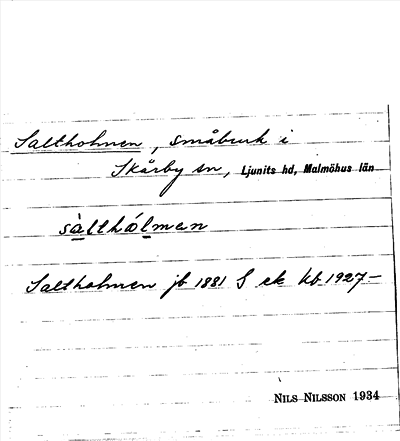 Saltholmen, småbruk i
Skårby sn, Ljunits hd, Malmöhus län
sàlthólmen
Saltholmen jb 1881 S ek kb 1927-
NILS NILSSON 1934